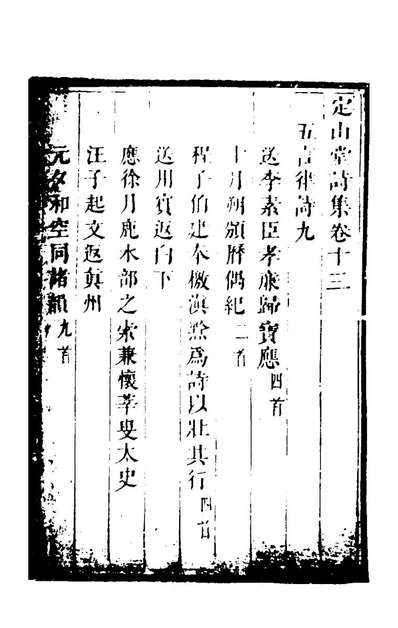 定山堂詩集卷十三
五言律詩九
送李素臣孝廉歸寶應四首
十月朔頒曆偶紀二首
程子伯建奉檄滇黔為詩以壯其行四首
送用賓返白下
應徐月鹿水部之索兼懷莘叟太史
汪子起文返真州
元夕和空同諸韻九首